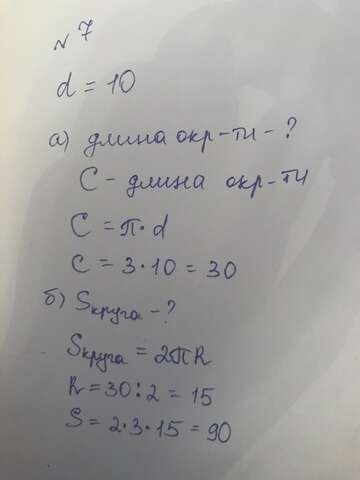 № 7
d = 10
а) длина окр-ти - ?
С - длина окр-ти
С = π · d
С = 3 · 10 = 30
б) Sкруга - ?
Sкруга = 2πR
R = 30 : 2 = 15
S = 2 · 3 · 15 = 90